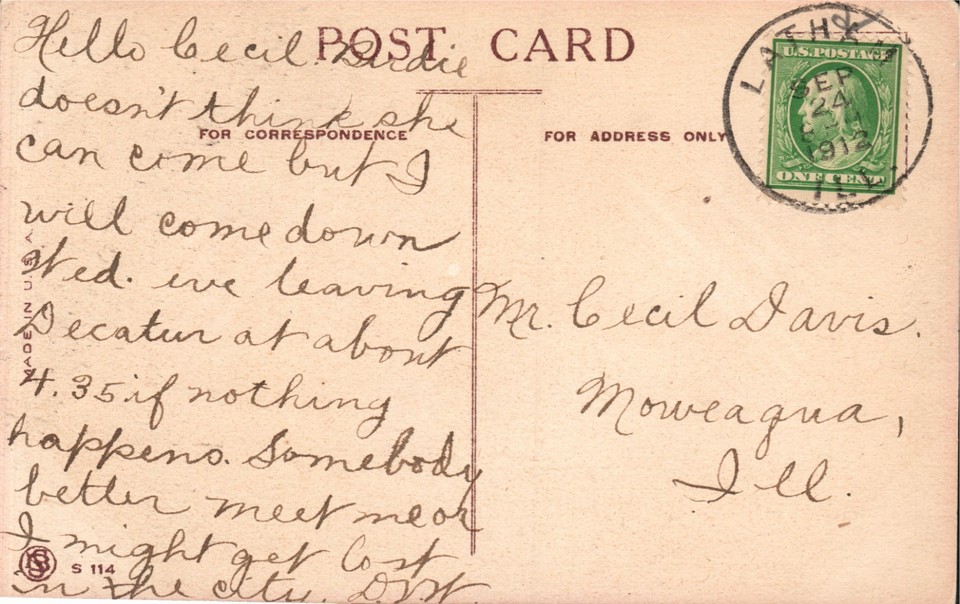 POST CARD
FOR CORRESPONDENCE
FOR ADDRESS ONLY
Hello Cecil. Birdie
doesn't think she
can come but I
will come down
Wed. eve leaving
Decatur at about
4.35 if nothing
happens. Somebody
better meet me or
I might get lost
in the city.
MADE IN U.S.A.
S 114
LATHAM
SEP
24
1912
ILL.
U.S. POSTAGE
ONE CENT
Mr. Cecil Davis.
Moweaqua,
Ill.